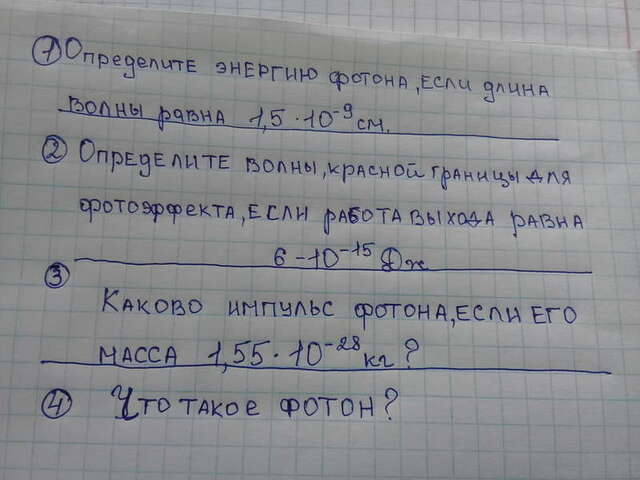 ① Определите энергию фотона, если длина
волны равна 1,5 · 10⁻⁹ см.
② Определите волны, красной границы для
фотоэффекта, если работа выхода равна
6 - 10⁻¹⁵ Дж
③
Каково импульс фотона, если его
масса 1,55 · 10⁻²⁸ кг?
④ Что такое фотон?